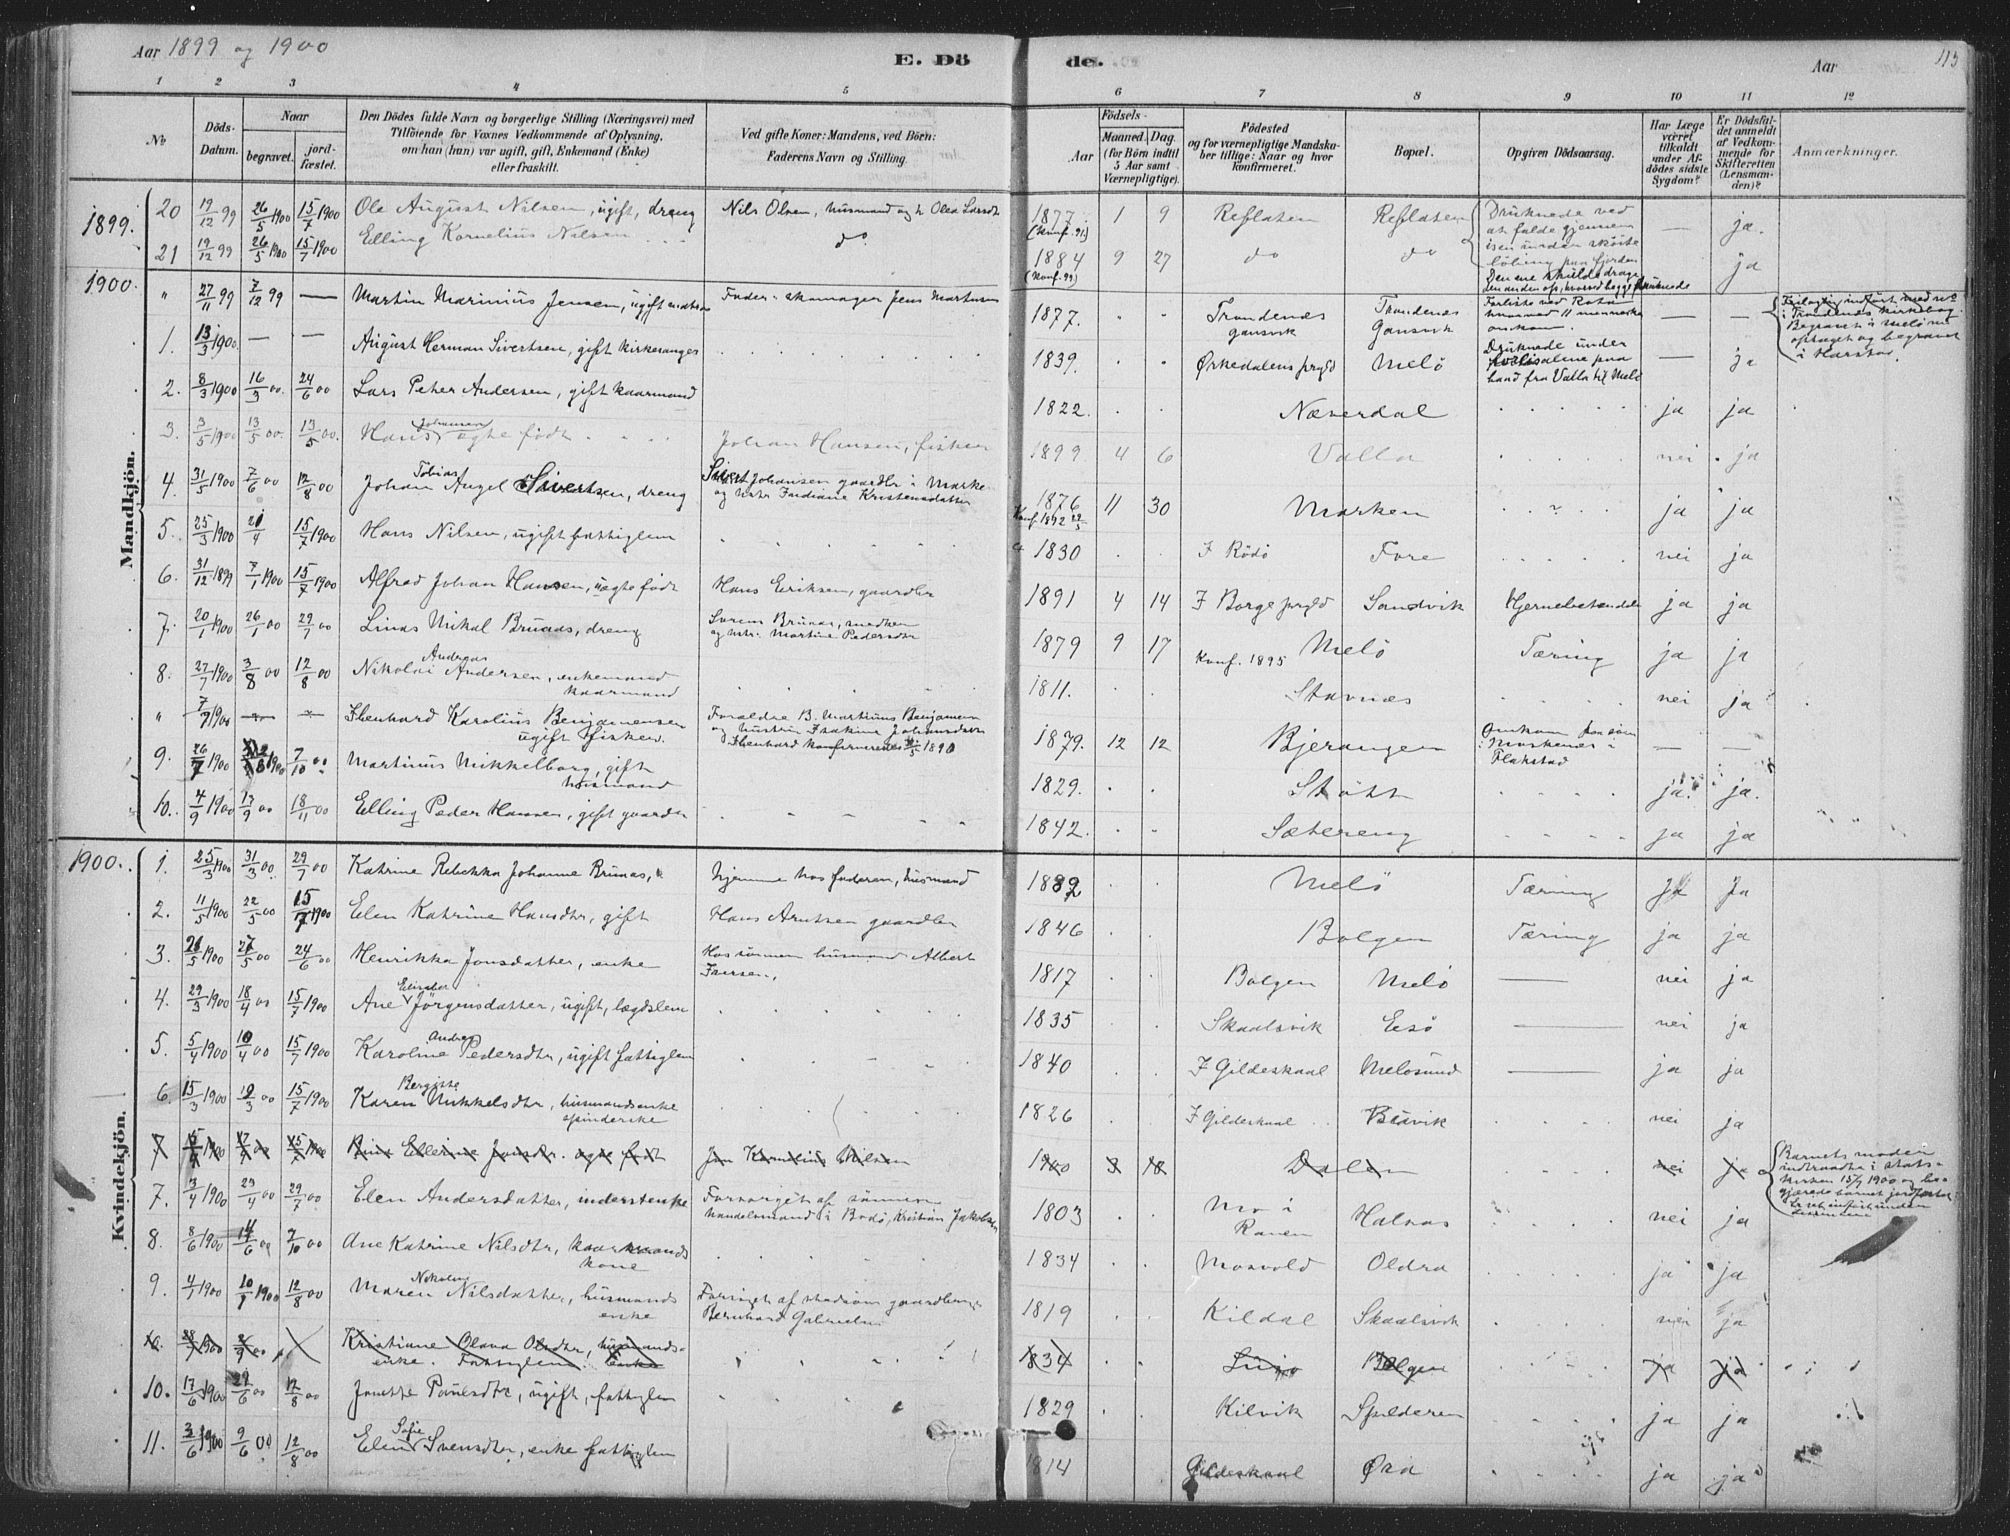 Aar 1899 og 1900
E. Dö
de.
Aar
113
1 2 3 4 5 6 7 8 9 10 11 12
No
Döds-Datum.
Naar
begravet.
jord-fæstet.
Den Dödes fulde Navn og borgerlige Stilling (Næringsvei) med
Tilföiende for Voxnes Vedkommende af Oplysning,
om han (hun) var ugift, gift, Enkemand (Enke)
eller fraskilt.
Ved gifte Koner: Mandens, ved Börn:
Faderens Navn og Stilling.
Födsels-
Aar
Maaned. Dag.
(for Börn indtil
5 Aar samt
Værnepligtige).
Födested
og for værnepligtige Mandska-
ber tillige: Naar og hvor
konfirmeret.
Bopæl.
Opgiven Dödsaarsag.
Har Læge
været
tilkaldt
under Af-
dödes sidste
Sygdom?
Er Dödsfal-
det anmeldt
af Vedkom-
mende for
Skifteretten
(Lensman-
den)?
Anmærkninger.
Mandkjön.
1899. 20 19/12 99 26/5 1900 15/7 1900 Ole August Nilsen, ugift, dreng Nils Olsen, husmand og h. Olea Larsdt 1877. (Konf. 91) 1 9 Resflaten Resflaten Druknede ved at falde gjennem isen under skøite løbing paa fjorden — ja.
21 19/12 99 26/5 1900 15/7 1900 Elling Kornelius Nilsen do 1884 (Konf. 99) 9 27 do do ja
1900. " 27/11 99 7/12 99 — Martin Marinius Jensen, ugift Fader: skomager Jens Martinsen 1877. " " Trondenes Gansvik Trondenes Gansvik Forliste ved hvorved 11 mennesker omkom. — —
i Trondenes kirkebog.
optaget og begravet
i Harstad.
1. 13/3 1900 — — August Herman Sivertsen, gift kirkesanger 1839. " " Ørkedalens prgld Melö Druknede under paa baad fra Valla til Melö — ja
2. 8/3 1900 16/3 00. 24/6 00 Lars Peter Andersen, gift kaarmand 1822. Næverdal ja ja
3. 3/5 1900 13/5 00. 13/5 00. Hans Johansen uægte født Johan Hansen, fisker 1899 4 6 Valla nei ja
4. 31/5 1900 7/6 00 12/8 00 Johan Tobias Angel Sivertsen, dreng Sivert Johansen gaardbr i Marken og hstr Kristensdatter 1876 Konf. 1892 11 30 Marken ja ja
5. 25/3 1900 21/4 15/7 1900 Hans Nilsen, ugift fattiglem 1830 I Rödö Fore nei ja
6. 31/12 1899 7/1 1900 15/7 1900 Alfred Johan Hansen, uægte født Hans Eriksen, gaardbr 1891 4 14 I Borge prgld Sandvik Hjernebetændelse ja ja
7. 20/1 1900 26/1 00 29/7 00 Linas Mikal Brunas, dreng Søren Brunas, og hstr. Martine Pedersdtr 1879 9 17 Konf. 1895 Melö Tæring ja ja
8. 27/7 1900 3/8 00 12/8 00 Nikolai Andreas Andersen, enkemand kaarmand 1811. Stavnes nei ja
" 7/9 1900 — — Ebenhard Karolius Benjaminsen ugift fisker. Forældre B. Martinus Benjamin og hustru Johansdatter Ebenhard konfirmeredes 1890 1879. 12 12 Bjerangen Omkom i Moskenes i Flakstad —
9. 26/7 1900 7/10 00 Martinus Mikkelborg, gift husmand 1829. Støtt ja. ja.
10. 4/9 1900 13/9 00 18/11 00 Elling Peder Hansen, gift gaardbr 1842. Sætereng ja ja
Kvindekjön.
1900. 1. 25/3 1900 31/3 00 29/7 00 Katrine Rebekka Johanne Brunas, hjemme hos faderen, husmand 1882 Melö Tæring ja ja
2. 11/5 1900 22/5 00 15/7 1900 Elen Katrine Hansdtr, gift Hans Arntsen gaardbr 1846 Bolgen Tæring ja ja
3. 21/5 1900 27/5 00 24/6 00 Henrikka Jonsdatter, enke Hos sønnen husmand Albert Iversen. 1817 Bolgen Melö — nei ja
4. 29/3 1900 18/4 00 15/7 1900 Ane Elisabet Jörgensdatter, ugift, lægdslem 1835 Skaalsvik Esö — nei ja
5. 5/4 1900 10/4 00 15/7 1900 Karoline Andrea Pedersdtr, ugift fattiglem 1840 I Gildeskaal Melösund — ja ja
6. 15/3 1900 19/3 00 15/7 1900 Karen Bergitte Mikkelsdtr, husmandsenke spinderske 1826 I Gildeskaal Buvik nei ja
7 15/7 1900 Elline Jonsdtr. uægte født Jon Kornelius Nilsen 1900 3 18 Dalen nei ja
Barnets moder
indtraadte i stats-
kirken 15/7 1900 og be-
gjærede barnet jordfæstet
7. 3/4 1900 23/4 00 29/7 00 Elen Andersdatter, inderstenke Forsørget af sønnen handelsmand i Bodö, Kristian Jakobsen 1803 Mo i Ranen Halsos nei ja
8. 8/6 1900 14/6 00 7/10 00 Ane Katrine Nilsdtr, kaarmands kone 1834 Mosvold Oldra ja ja
9. 4/7 1900 10/7 1900 12/8 00 Maren Nikoline Nilsdatter, husmands enke Forsørget af stedsøn gaardbruger Bernhard Gabrielsen 1819 Kildal Skaalsvik nei ja
10. 28/7 1900 00 Kristiane Olava Olsdtr, husmands-enke. Fattiglem. 1834 Bolgen ja ja
10. 17/6 1900 29/6 00 12/8 00 Jonette Poulsdtr, ugift, fattiglem 1829 Kilvik Spilderen ja ja
11. 3/6 1900 9/6 00 12/8 00 Elen Sofie Svensdtr, enke fattiglem 1814 Gildeskaal Øra ja ja